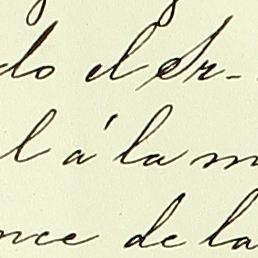 do el Sr-
l á la m
nce de la